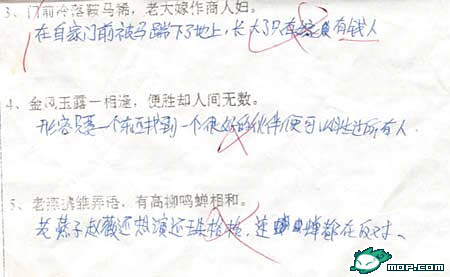 3、门前冷落鞍马稀，老大嫁作商人妇。
在自家门前被马踹下了地上，长大了只有嫁没有钱人
4、金风玉露一相逢，便胜却人间无数。
形容只要一个东西找到一个很好的伙伴便可以胜过所有人.
5、老燕携雏弄语，有高柳鸣蝉相和。
老燕子赵薇还想演还珠格格，连 蝉都在反对、
mop.com